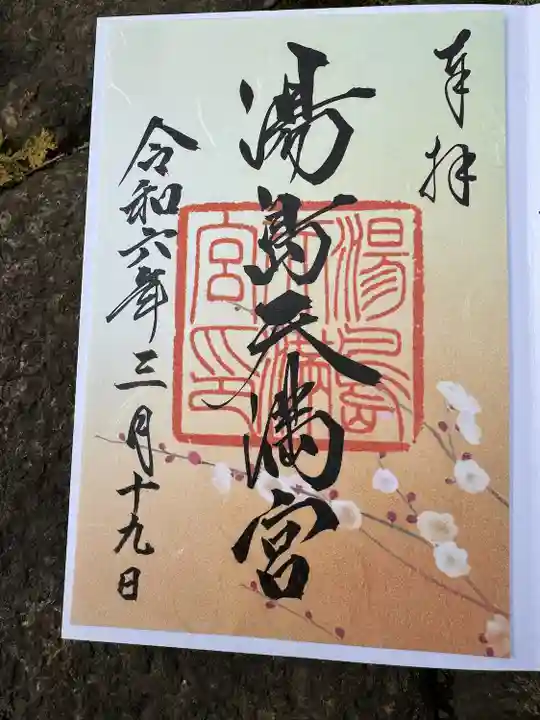 奉拝
湯島天満宮
令和六年三月十九日
湯島
天満
宮印